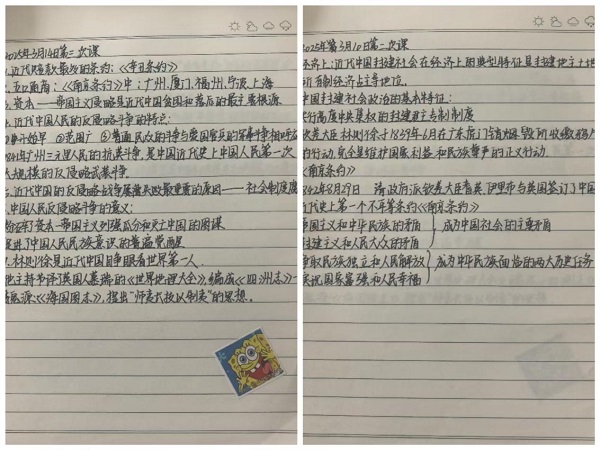 2025年3月14日第二次课
1.近代赔款最多的条约:《辛丑条约》
2.五口通商:《南京条约》中:广州、厦门、福州、宁波、上海
3.资本——帝国主义侵略是近代中国贫困和落后的最主要根源
4.近代中国人民的反侵略斗争的特点:
开始早 ②范围广 ③普通民众的斗争与爱国官兵的军事斗争相呼应
1841年广州三元里人民的抗英斗争,是中国近代史上中国人民第一次
大规模的反侵略武装斗争
近代中国的反侵略战争屡遭失败最重要的原因——社会制度腐
中国人民反侵略斗争的意义:
粉碎了资本—帝国主义列强瓜分和灭亡中国的图谋
促进了中国人民民族意识的普遍觉醒
7.林则徐是近代中国睁眼看世界第一人
他主持节译英国人慕瑞的《世界地理大全》,编成《四洲志》
魏源《海国图志》,提出“师夷长技以制夷”的思想。
2025年第3月10日第二次课
经济上:近代中国封建社会在经济上的典型特征是封建地主土地
所有制经济占主导地位。
中国封建社会政治的基本特征:
实行高度中央集权的封建君主专制制度
钦差大臣林则徐于1839年6月在广东虎门销烟,毁所收缴鸦片
的行动,完全是维护国家利益和民族尊严的正义行动.
《南京条约》
1842年8月29日 清政府派钦差大臣耆英、伊里布与英国签订了中国
近代史上第一个不平等条约《南京条约》
帝国主义和中华民族的矛盾
封建主义和人民大众的矛盾
成为中国社会的主要矛盾
争取民族独立和人民解放
实现国家富强和人民幸福
成为中华民族面临的两大历史任务